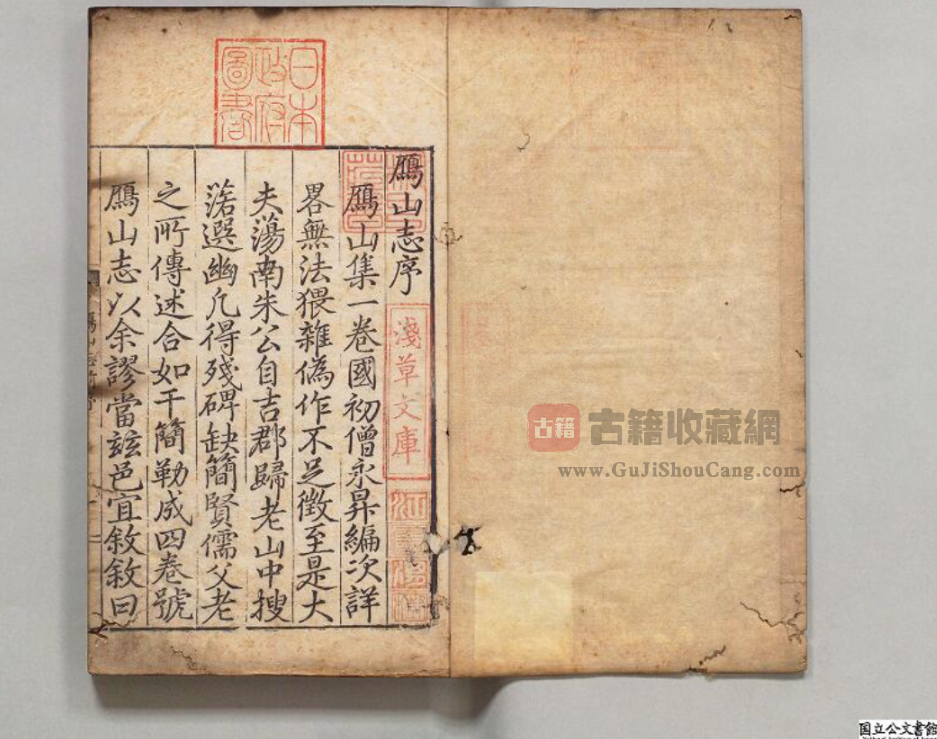 日本
政府
圖書
鴈山志序
鴈山集一卷國初僧永昇編次詳
畧無法猥雜偽作不足徵至是大
夫蕩南朱公自吉郡歸老山中搜
選幽凢得殘碑缺簡賢儒父老
之所傳述合如干簡勒成四卷號
鴈山志以余謬當茲邑宜敘敘曰
淺草文庫
古籍
古籍收藏網
www.GuJiShouCang.com
国立公文書館